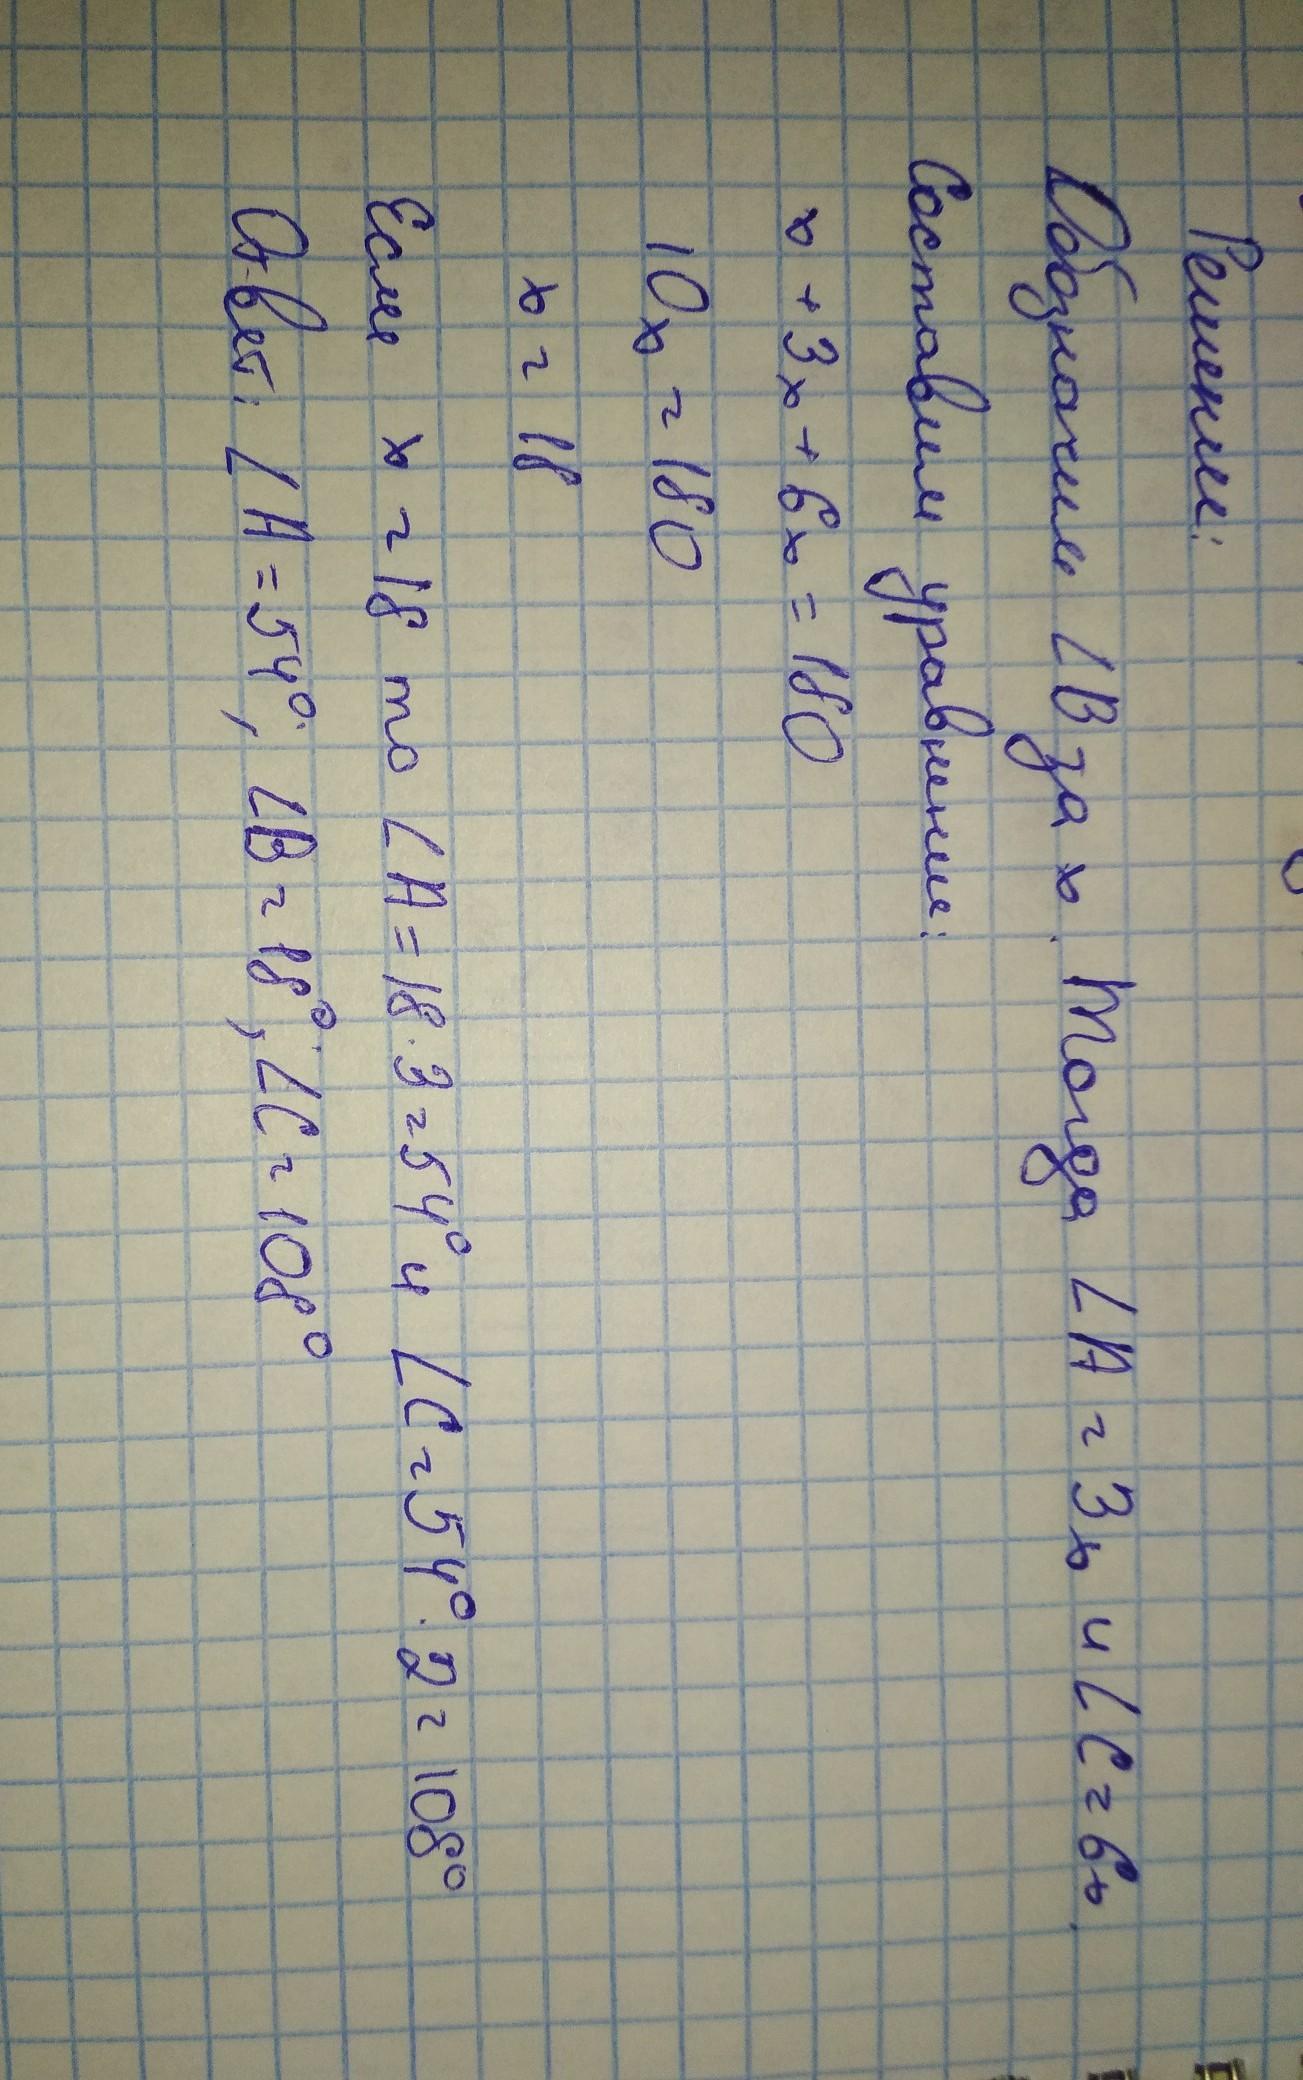 Решение:
Обозначим ∠B за x. Тогда ∠A = 3x и ∠C = 6x.
Составим уравнение:
x + 3x + 6x = 180
10x = 180
x = 18
Если x = 18 то ∠A = 18 · 3 = 54° и ∠C = 54° · 2 = 108°
Ответ: ∠A = 54°, ∠B = 18°, ∠C = 108°